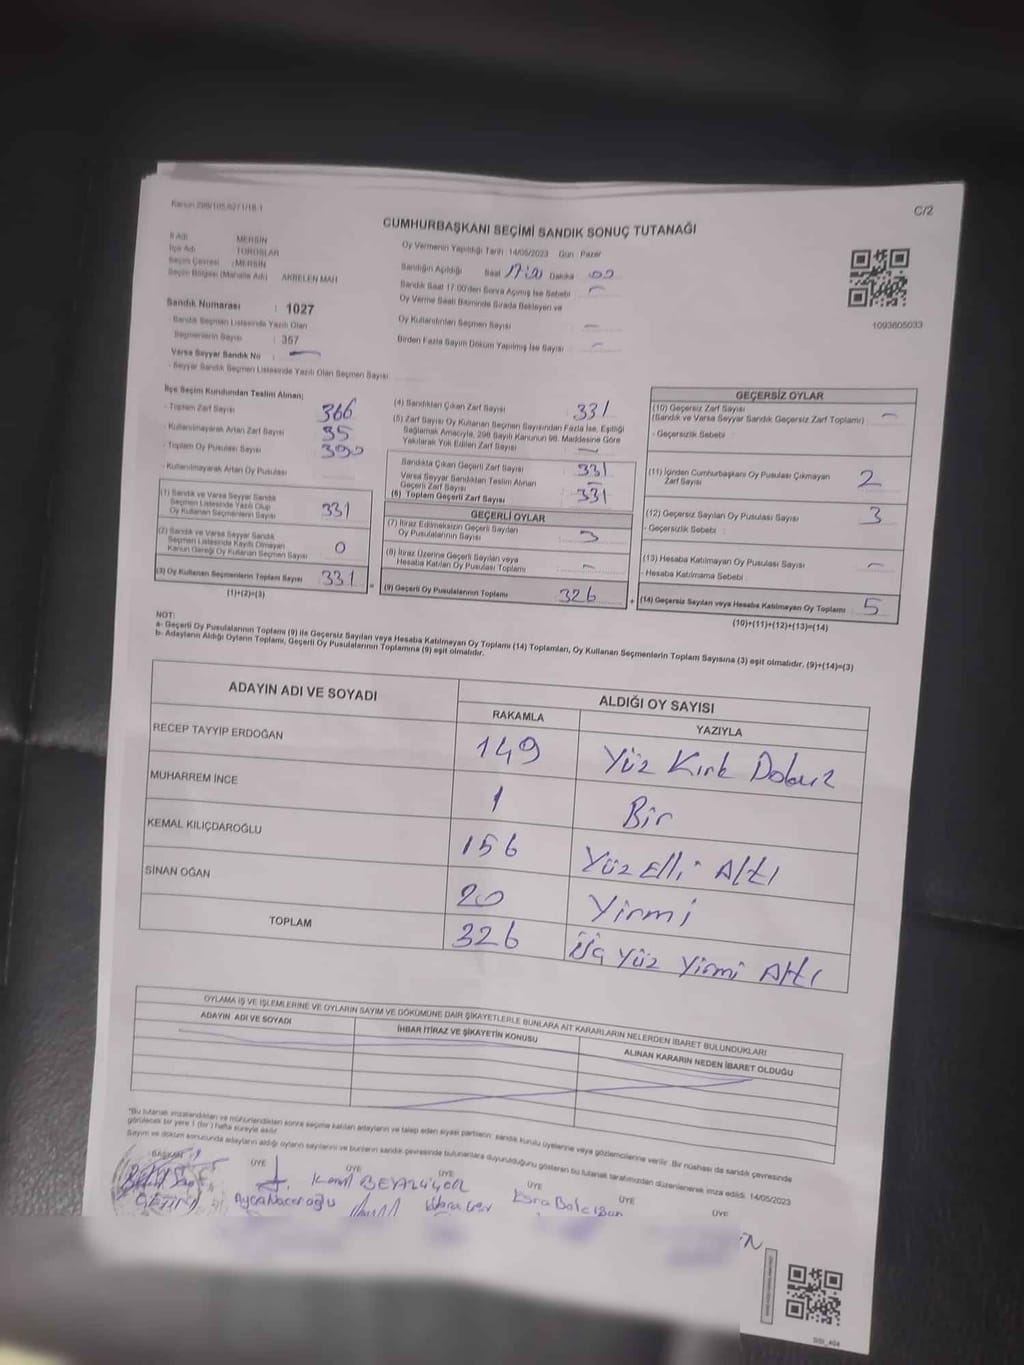 Kanun 298/105,6271/18-1
C/2
CUMHURBAŞKANI SEÇİMİ SANDIK SONUÇ TUTANAĞI
İl Adı : MERSİN
İlçe Adı : TOROSLAR
Seçim Çevresi : MERSİN
Seçim Bölgesi (Mahalle Adı) AKBELEN MAH
Sandık Numarası : 1027
Sandık Seçmen Listesinde Yazılı Olan
Seçmenlerin Sayısı : 357
Varsa Seyyar Sandık No :
- Seyyar Sandık Listesinde Yazılı Olan Seçmen Sayısı
Oy Vermenin Yapıldığı Tarih 14/05/2023 Gün : Pazar
Sandığın Açıldığı Saat 17:00 Dakika 00
Sandık Saat 17.00'den Sonra Açılmış İse Sebebi :
Oy Verme Saati Bitiminde Sırada Bekleyen ve
Oy Kullandırılan Seçmen Sayısı
Birden Fazla Sayım Döküm Yapılmış İse Sayısı :
1093605033
İlçe Seçim Kurulundan Teslim Alınan;
- Toplam Zarf Sayısı 366
- Kullanılmayarak Artan Zarf Sayısı 35
- Toplam Oy Pusulası Sayısı 390
- Kullanılmayarak Artan Oy Pusulası
(1) Sandık ve Varsa Seyyar Sandık
Seçmen Listesinde Yazılı Olup
Oy Kullanan Seçmenlerin Sayısı 331
(2) Sandık ve Varsa Seyyar Sandık
Seçmen Listesinde Kayıtlı Olmayan
Kanun Gereği Oy Kullanan Seçmen Sayısı 0
(3) Oy Kullanan Seçmenlerin Toplam Sayısı 331 =
(1)+(2)=(3)
(4) Sandıktan Çıkan Zarf Sayısı : 331
(5) Zarf Sayısı Oy Kullanan Seçmen Sayısından Fazla İse, Eşitliği
Sağlamak Amacıyla, 298 Sayılı Kanunun 98. Maddesine Göre
Yakılarak Yok Edilen Zarf Sayısı :
Sandıkta Çıkan Geçerli Zarf Sayısı 331
Varsa Seyyar Sandıktan Teslim Alınan
Geçerli Zarf Sayısı
(6) Toplam Geçerli Zarf Sayısı 331
GEÇERLİ OYLAR
(7) İtiraz Edilmeksizin Geçerli Sayılan
Oy Pusulalarının Sayısı
(8) İtiraz Üzerine Geçerli Sayılan veya
Hesaba Katılan Oy Pusulası Toplamı
(9) Geçerli Oy Pusulalarının Toplamı 326 +
GEÇERSİZ OYLAR
(10) Geçersiz Zarf Sayısı
(Sandık ve Varsa Seyyar Sandık Geçersiz Zarf Toplamı)
- Geçersizlik Sebebi :
(11) İçinden Cumhurbaşkanı Oy Pusulası Çıkmayan
Zarf Sayısı 2
(12) Geçersiz Sayılan Oy Pusulası Sayısı 3
- Geçersizlik Sebebi :
(13) Hesaba Katılmayan Oy Pusulası Sayısı
- Hesaba Katılmama Sebebi :
(14) Geçersiz Sayılan veya Hesaba Katılmayan Oy Toplamı 5
(10)+(11)+(12)+(13)=(14)
NOT:
a- Geçerli Oy Pusulalarının Toplamı (9) ile Geçersiz Sayılan veya Hesaba Katılmayan Oy Toplamı (14) Toplamları, Oy Kullanan Seçmenlerin Toplam Sayısına (3) eşit olmalıdır. (9)+(14)=(3)
b- Adayların Aldığı Oyların Toplamı, Geçerli Oy Pusulalarının Toplamına (9) eşit olmalıdır.
ADAYIN ADI VE SOYADI
ALDIĞI OY SAYISI
RAKAMLA YAZIYLA
RECEP TAYYIP ERDOĞAN 149 Yüz Kırk Dokuz
MUHARREM İNCE 1 Bir
KEMAL KILIÇDAROĞLU 156 Yüz Elli Altı
SİNAN OĞAN 20 Yirmi
TOPLAM 326 Üç Yüz Yirmi Altı
OYLAMA İŞ VE İŞLEMLERİNE VE OYLARIN SAYIM VE DÖKÜMÜNE DAİR ŞİKAYETLERLE BUNLARA AİT KARARLARIN NELERDEN İBARET BULUNDUKLARI
ADAYIN ADI VE SOYADI
İHBAR İTİRAZ VE ŞİKAYETİN KONUSU
ALINAN KARARIN NEDEN İBARET OLDUĞU
"Bu tutanak imzalandıktan ve mühürlendikten sonra seçime katılan adayların ve talep eden siyasi partilerin sandık kurulu üyelerine veya gözlemcilerine verilir. Bir nüshası da sandık çevresinde
görülecek bir yere 1 (bir) hafta süreyle asılır
Sayım ve döküm sonucunda adayların aldığı oyların sayılarını ve bunların sandık çevresinde bulunanlara duyurulduğunu gösteren bu tutanak tarafımızdan düzenlenerek imza edildi. 14/05/2023
BAŞKAN ÜYE ÜYE ÜYE ÜYE ÜYE ÜYE